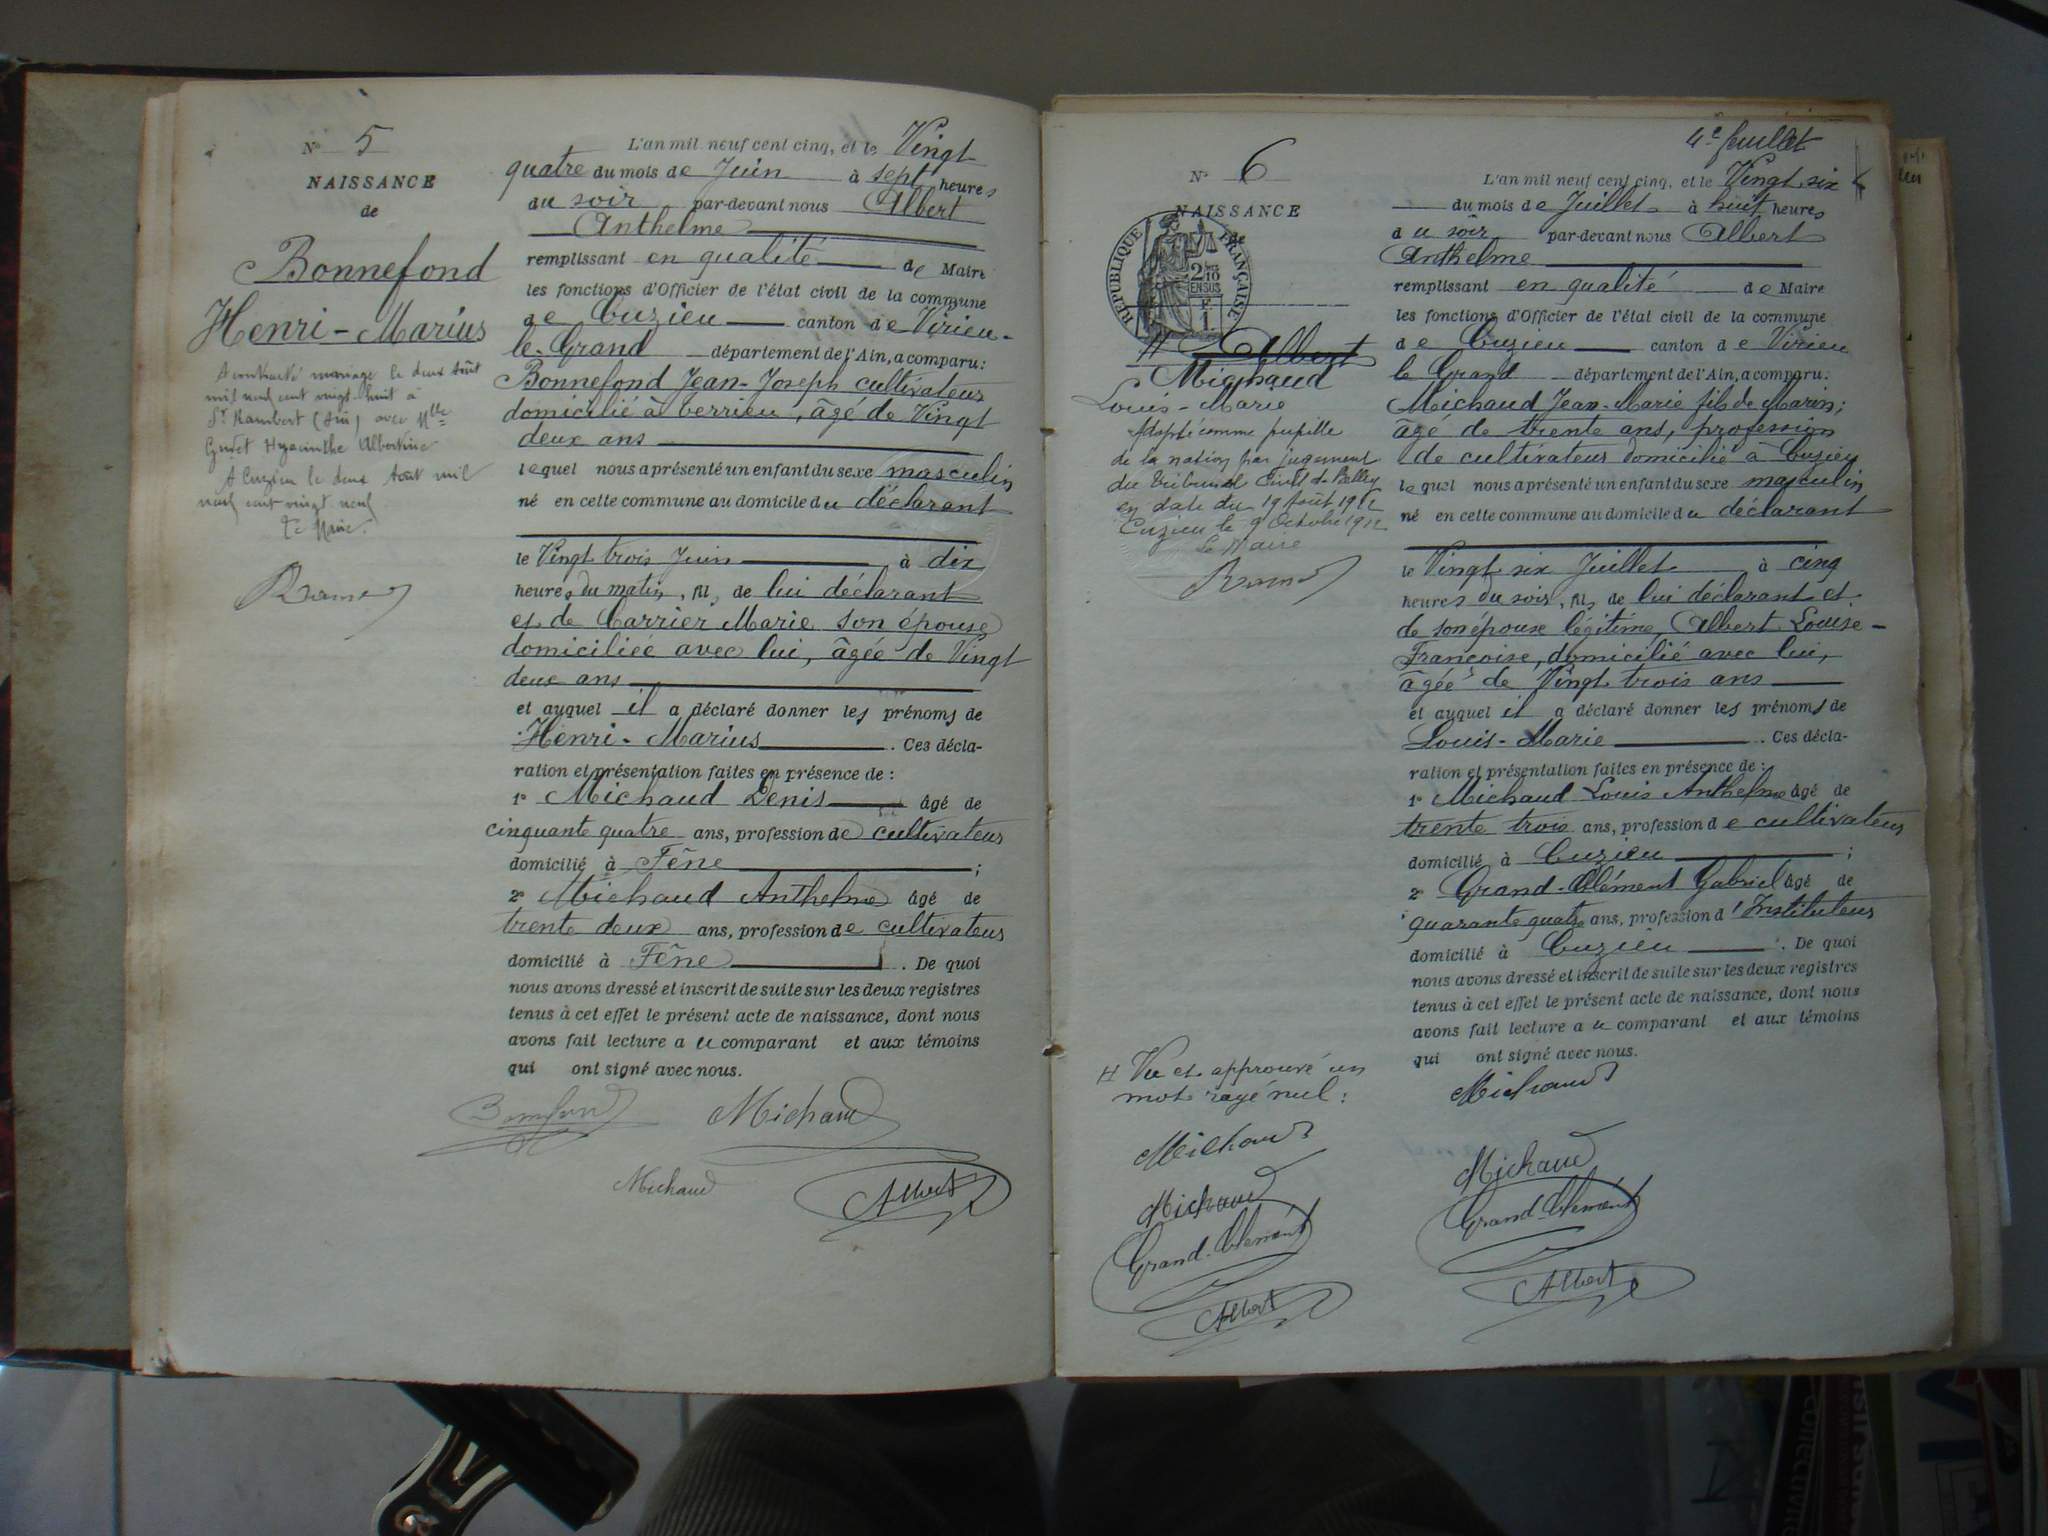 N° 5
NAISSANCE
de
Bonnefond
Henri-Marius
A contracté mariage le deux Août
mil neuf cent vingt-huit à
St Rambert (Ain) avec Mlle
Hyacinthe Albertine
A Cuzieu le deux Août mil
neuf cent vingt neuf
Le Maire.
L'an mil neuf cent cinq, et le Vingt
quatre du mois de Juin à sept heures
du soir par-devant nous Albert
Anthelme
remplissant en qualité de Maire
les fonctions d'Officier de l'état civil de la commune
de Cuzieu canton de Virieu-
le-Grand département de l'Ain, a comparu:
Bonnefond Jean-Joseph cultivateur
domicilié à Cerrieu, âgé de Vingt
deux ans
lequel nous a présenté un enfant du sexe masculin
né en cette commune au domicile du déclarant
le Vingt trois Juin à dix
heures du matin, fils de lui déclarant
et de Carrier Marie son épouse
domiciliée avec lui, âgée de Vingt
deux ans
et auquel il a déclaré donner les prénoms de
Henri-Marius. Ces décla-
ration et présentation faites en présence de :
1° Michaud Denis âgé de
cinquante quatre ans, profession de cultivateur
domicilié à Fêne ;
2° Michaud Anthelme âgé de
trente deux ans, profession de cultivateur
domicilié à Fêne. De quoi
nous avons dressé et inscrit de suite sur les deux registres
tenus à cet effet le présent acte de naissance, dont nous
avons fait lecture au comparant et aux témoins
qui ont signé avec nous.
Bonnefond Michaud
Michaud Albert
4e feuillet
N° 6
NAISSANCE
de
RÉPUBLIQUE FRANÇAISE
2/10
EN SUS
F
1
# Albert
Michaud
Louis-Marie
Adopté comme pupille
de la nation par jugement
du Tribunal Civil de Belley
en date du 19 Août
Cuzieu le 9 Octobre
Le Maire
L'an mil neuf cent cinq, et le Vingt six
du mois de Juillet à huit heures
du soir par-devant nous Albert
Anthelme
remplissant en qualité de Maire
les fonctions d'Officier de l'état civil de la commune
de Cuzieu canton de Virieu
le Grand département de l'Ain, a comparu:
Michaud Jean-Marie fils de Marin;
âgé de trente ans, profession
de cultivateur domicilié à Cuzieu
lequel nous a présenté un enfant du sexe masculin
né en cette commune au domicile du déclarant
le Vingt six Juillet à cinq
heures du soir, fils de lui déclarant et
de son épouse légitime, Albert Louise-
Françoise, domicilié avec lui,
âgée de Vingt trois ans
et auquel il a déclaré donner les prénoms de
Louis-Marie. Ces décla-
ration et présentation faites en présence de :
1° Michaud Louis Anthelme âgé de
trente trois ans, profession de cultivateur
domicilié à Cuzieu ;
2° Grand-Clément Gabriel âgé de
quarante quatre ans, profession d'Instituteur
domicilié à Cuzieu. De quoi
nous avons dressé et inscrit de suite sur les deux registres
tenus à cet effet le présent acte de naissance, dont nous
avons fait lecture au comparant et aux témoins
qui ont signé avec nous.
Michaud
Michaud
Grand-Clément
Albert
# Vu et approuvé un
mot rayé nul :
Michaud
Michaud
Grand-Clément
Albert